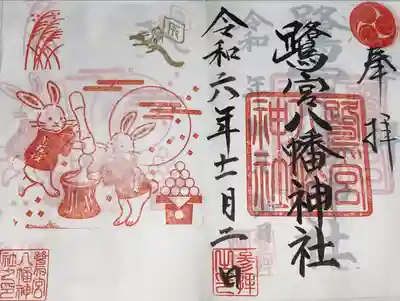 奉拝
鷺宮八幡神社
令和六年十一月二日
鷺宮
八幡
神社
辰
鷺宮
八幡神
社之印